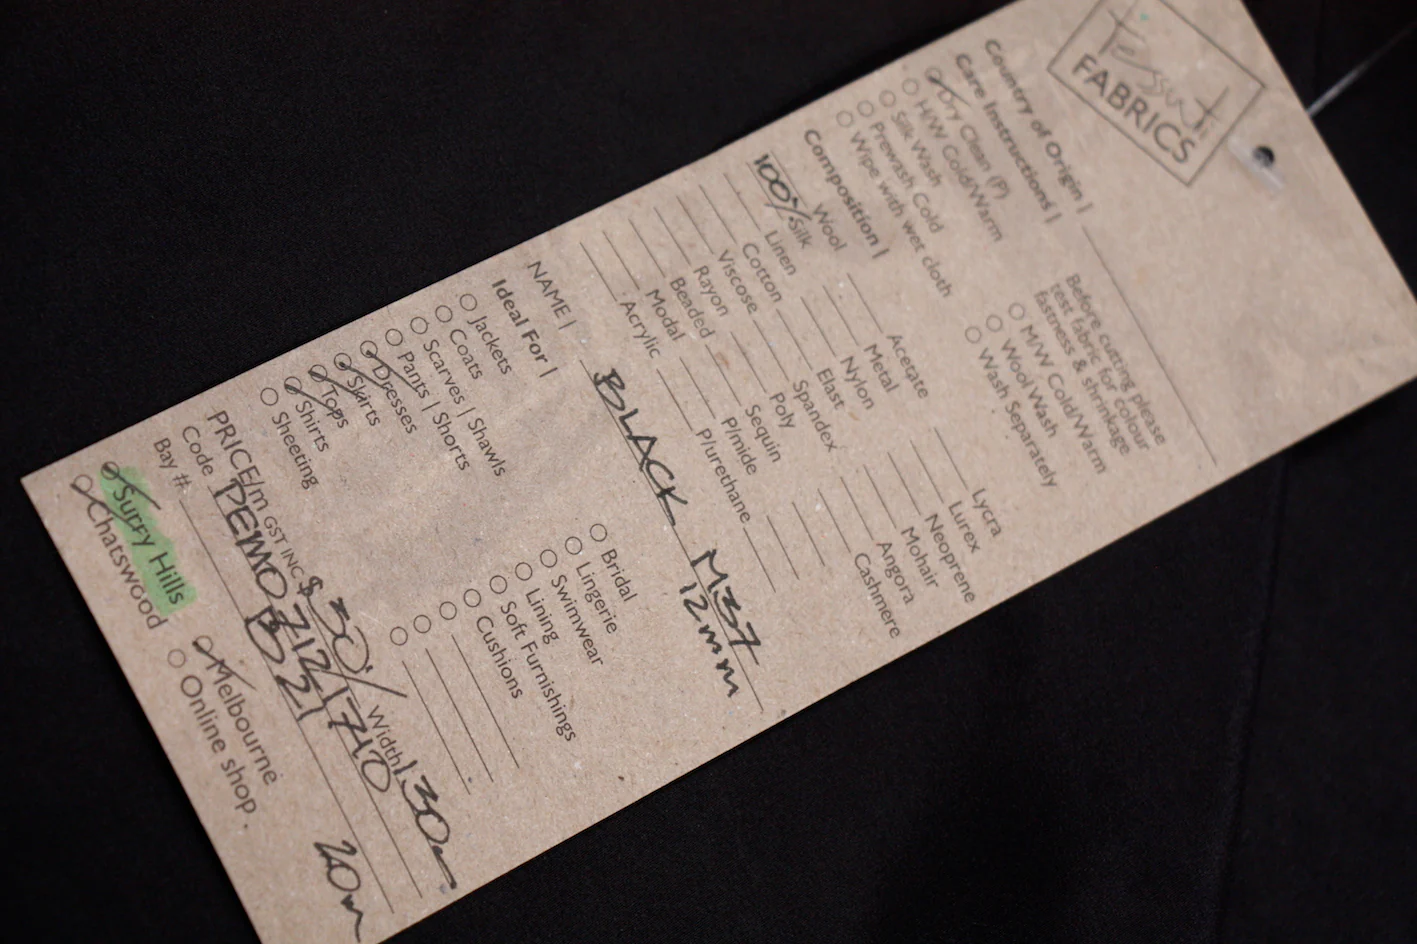 Tessuti
FABRICS
Country of Origin |
Care Instructions |
Dry Clean (P)
H/W Cold/Warm
Silk Wash
Prewash Cold
Wipe with wet cloth
Before cutting please
test fabric for colour
fastness & shrinkage
M/W Cold/Warm
Wool Wash
Wash Separately
Composition |
Wool Acetate Lycra
100% Silk Metal Lurex
Linen Nylon Neoprene
Cotton Elast Mohair
Viscose Spandex Angora
Rayon Poly Cashmere
Beaded Sequin
Modal P/mide
Acrylic P/urethane
NAME | BLACK M37
12mm
Ideal For |
Jackets
Coats
Scarves | Shawls
Pants | Shorts
Dresses
Skirts
Tops
Shirts
Sheeting
Bridal
Lingerie
Swimwear
Lining
Soft Furnishings
Cushions
PRICE/m GST INC $30/ Width 130
Code PEMO7121710
Bay # B21
Surry Hills
Chatswood
Melbourne
Online shop.
20m